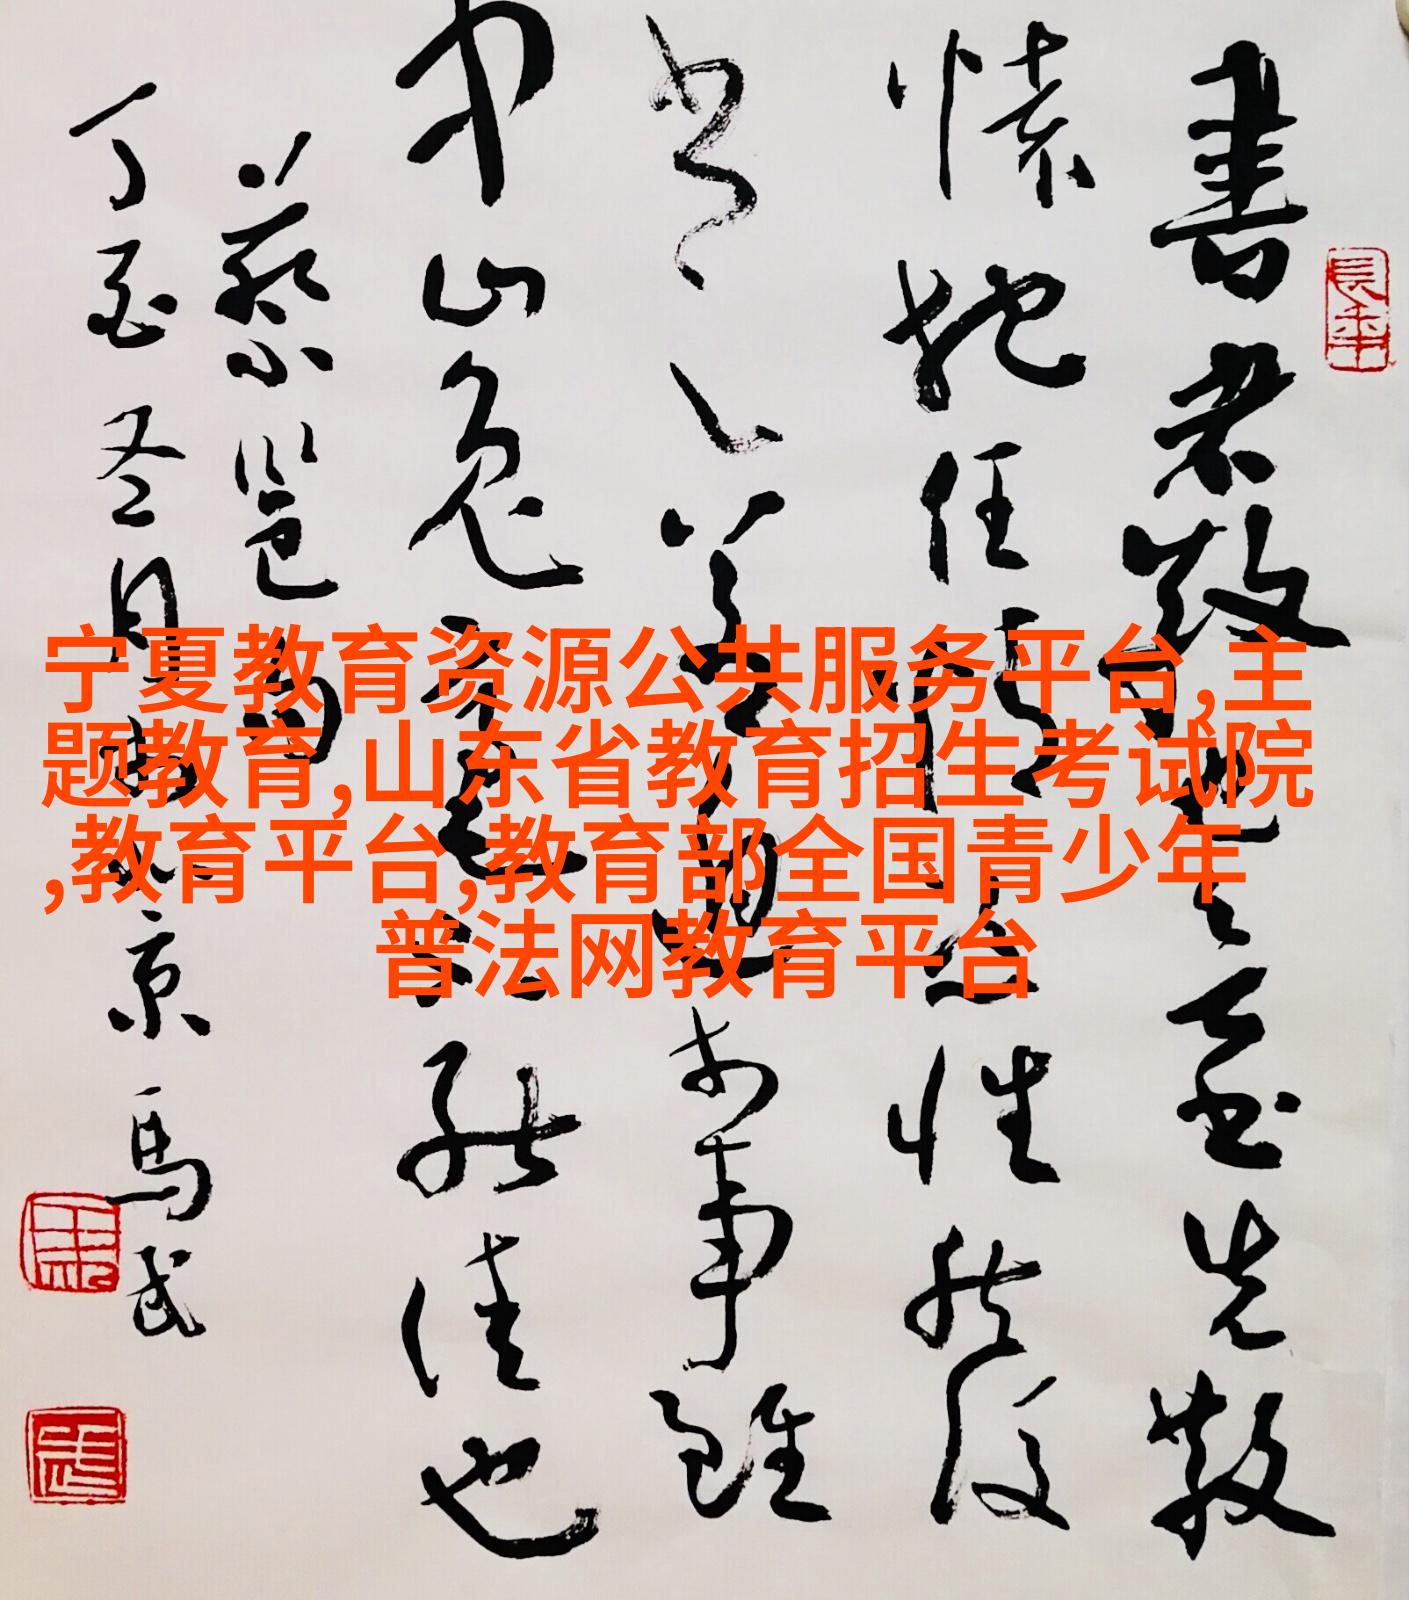 宁夏教育资源公共服务平台,主
题教育,山东省教育招生考试院
,教育平台,教育部全国青少年
普法网教育平台
書者散也欲書先散
懷抱任情恣性然後
書之若迫於事雖
中山兔毫不能佳也
蔡邕句
丁酉冬月京馬武